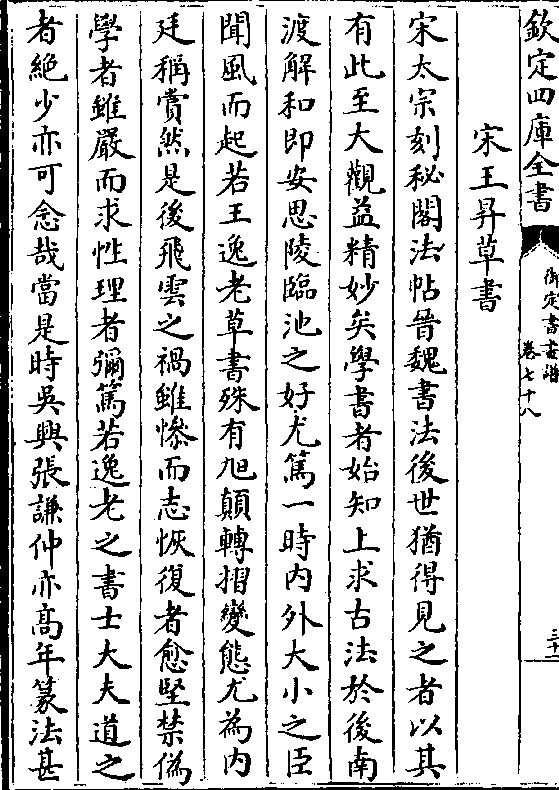 欽定四庫全書
御定書畫譜
卷七十八
三十二
宋王昇草書
宋太宗刻秘閣法帖晉魏書法後世猶得見之者以其
有此至大觀益精妙矣學書者始知上求古法於後南
渡解和即安思陵臨池之好尤篤一時内外大小之臣
聞風而起若王逸老草書殊有旭顛轉摺變態尤為内
廷稱賞然是後飛雲之禍雖慘而志恢復者愈堅禁偽
學者雖嚴而求性理者彌篤若逸老之書士大夫道之
者絶少亦可念哉當是時吳興張謙仲亦髙年篆法甚